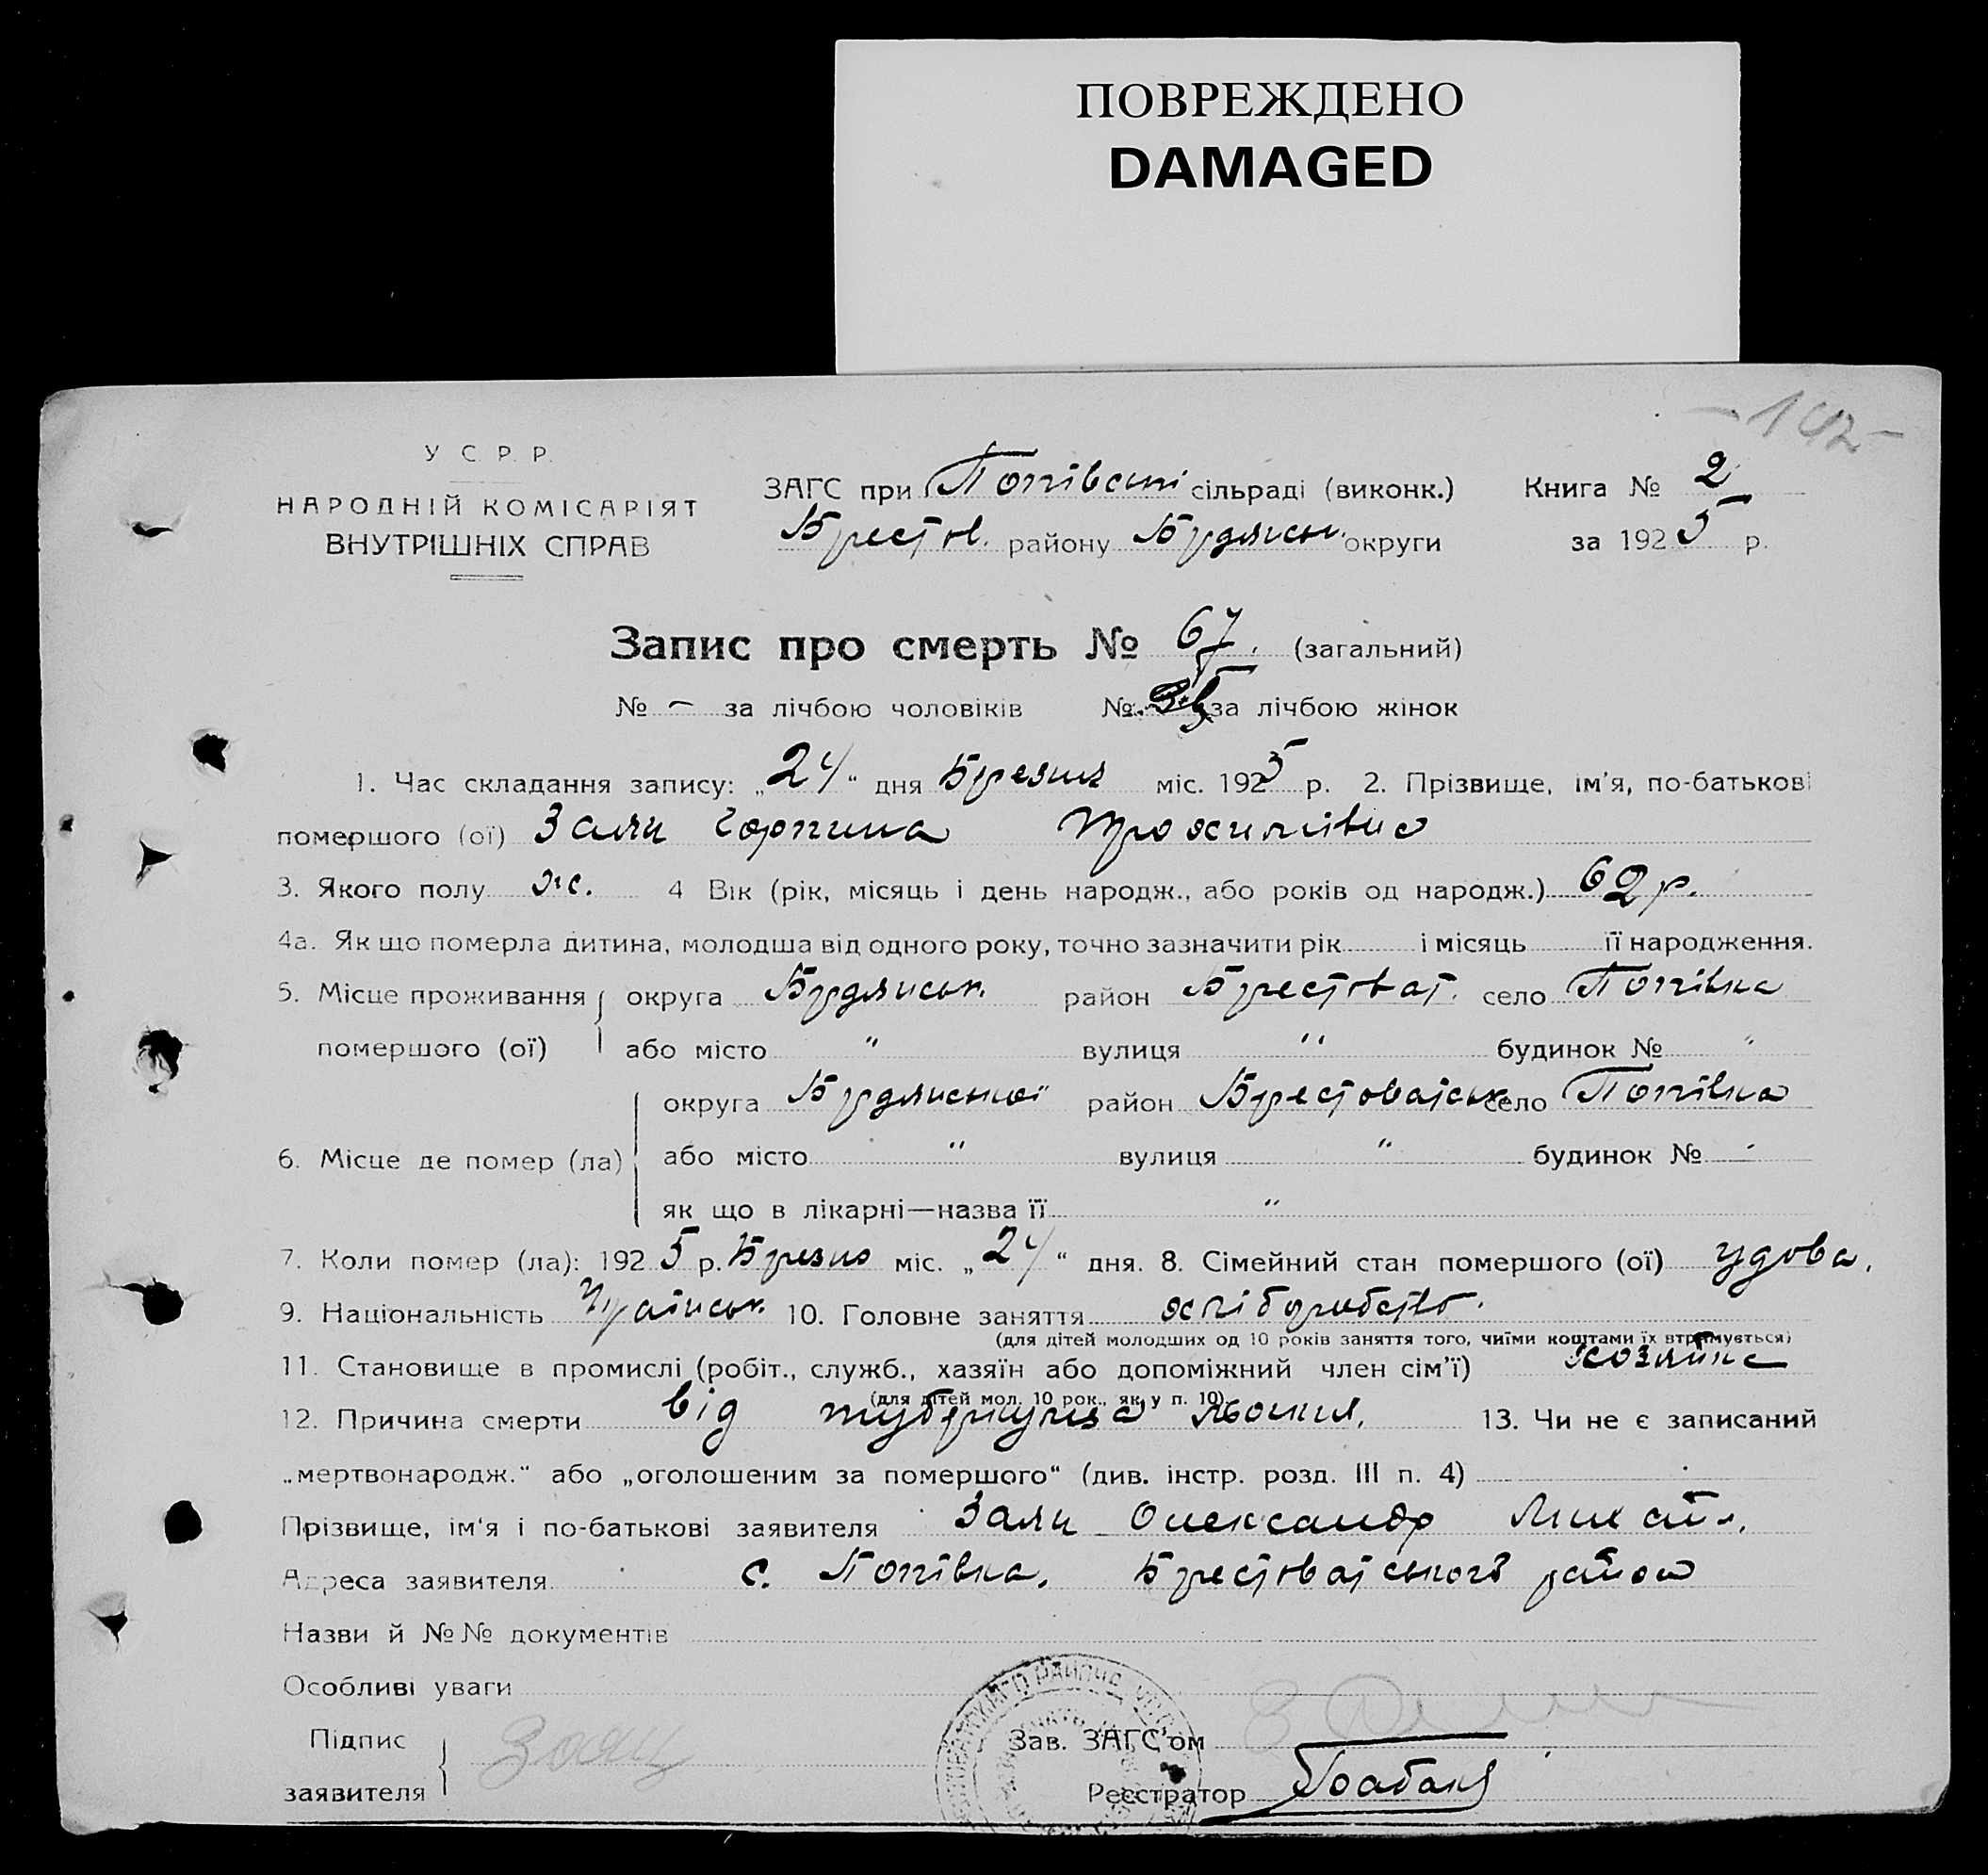 ПОВРЕЖДЕНО
DAMAGED
У С. Р. Р.
НАРОДНІЙ КОМІСАРІЯТ
ВНУТРІШНІХ СПРАВ
ЗАГС при Попівські сільраді (виконк.) Книга № 2
Брестов. району Бердянськ. округи за 1925 р.
Запис про смерть № 67. (загальний)
№ – за лічбою чоловіків № за лічбою жінок
1. Час складання запису: „24“ дня Березня міс. 1925 р. 2. Прізвище, ім'я, по-батькові
помершого (ої) Заяц Горпина
3. Якого полу ж. 4 Вік (рік, місяць і день народж., або років од народж.) 62 р.
4а. Як що померла дитина, молодша від одного року, точно зазначити рік і місяць її народження.
5. Місце проживання округа Бердянськ. район Брестоват. село Попівка
помершого (ої) або місто " вулиця " будинок № "
округа Бердянської район Брестоватськ село Попівка
6. Місце де помер (ла) або місто " вулиця " будинок № "
як що в лікарні—назва її "
7. Коли помер (ла): 1925 р. Березня міс. „24“ дня. 8. Сімейний стан помершого (ої) удова.
9. Національність Українськ. 10. Головне заняття хліборобство.
(для дітей молодших од 10 років заняття того, чиїми коштами їх втримується)
11. Становище в промислі (робіт., служб., хазяїн або допоміжний член сім'ї) хозяйка
(для дітей мол. 10 рок., як у п. 10)
12. Причина смерти від туберкульоза 13. Чи не є записаний
„мертвонародж.“ або „оголошеним за помершого“ (див. інстр. розд. III п. 4)
Прізвище, ім'я і по-батькові заявителя Заяц Олександр Михайл.
Адреса заявителя с. Попівка, Брестоватського района
Назви й №№ документів
Особливі уваги
Підпис
Зав. ЗАГС'ом
заявителя Заяц
Реєстратор